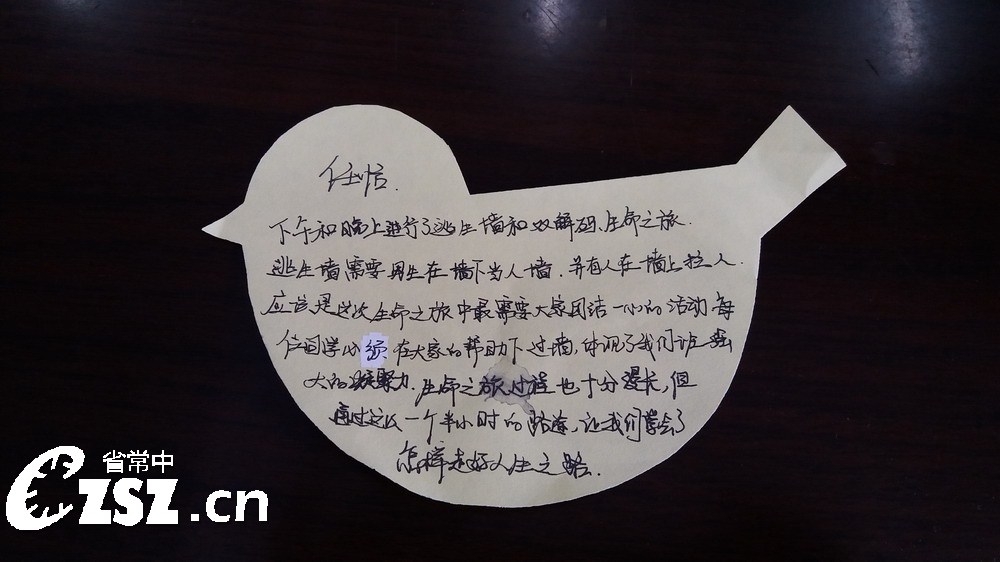 任恬.
下午和晚上进行了逃生墙和双解码、生命之旅.
逃生墙需要男生在墙下当人墙.并有人在墙上拉人.
应该是这次生命之旅中最需要大家团结一心的活动.每
位同学必须在大家的帮助下过墙,体现了我们班强
大的凝聚力.生命之旅过程也十分漫长,但
通过这次一个半小时的路途,让我们学会了
怎样走好人生之路.
省常中
czsz.cn